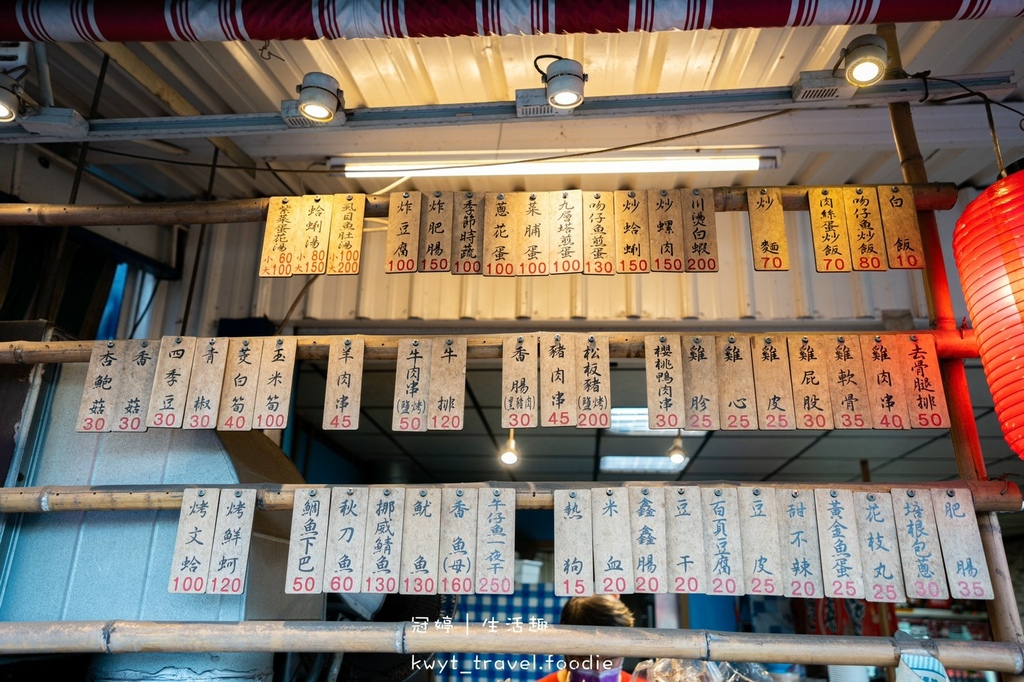 紫菜蛋花湯 小60 大100
蛤蜊湯 小80 大150
虱目魚肚湯 小100 大200
炸豆腐 100
炸肥腸 150
季節時蔬 100
蔥花蛋 100
菜脯蛋 100
九層塔煎蛋 100
吻仔魚煎蛋 130
炒蛤蜊 150
炒螺肉 150
川燙白蝦 200
炒麵 70
肉絲蛋炒飯 70
吻仔魚炒飯 80
白飯 10
杏鮑菇 30
香菇 30
四季豆 30
青椒 30
茭白筍 40
玉米筍 100
羊肉串 45
牛肉串(鹽烤) 50
牛排 120
香腸(黑豬肉) 50
豬肉串 45
松板豬(鹽烤) 200
櫻桃鴨肉串 30
雞胗 25
雞心 25
雞皮 25
雞屁股 30
雞軟骨 35
雞肉串 40
去骨腿排 50
烤文蛤 100
烤鮮蚵 120
鯛魚下巴 50
秋刀魚 60
挪威鯖魚 130
魷魚 130
香魚(母) 160
午仔魚一夜干 250
熱狗 15
米血 20
鑫鑫腸 20
豆干 20
百頁豆腐 20
豆皮 25
甜不辣 20
黃金魚蛋 25
花枝丸 25
培根包蔥 30
肥腸 35
冠婷｜生活趣
kwyt_travel.foodie